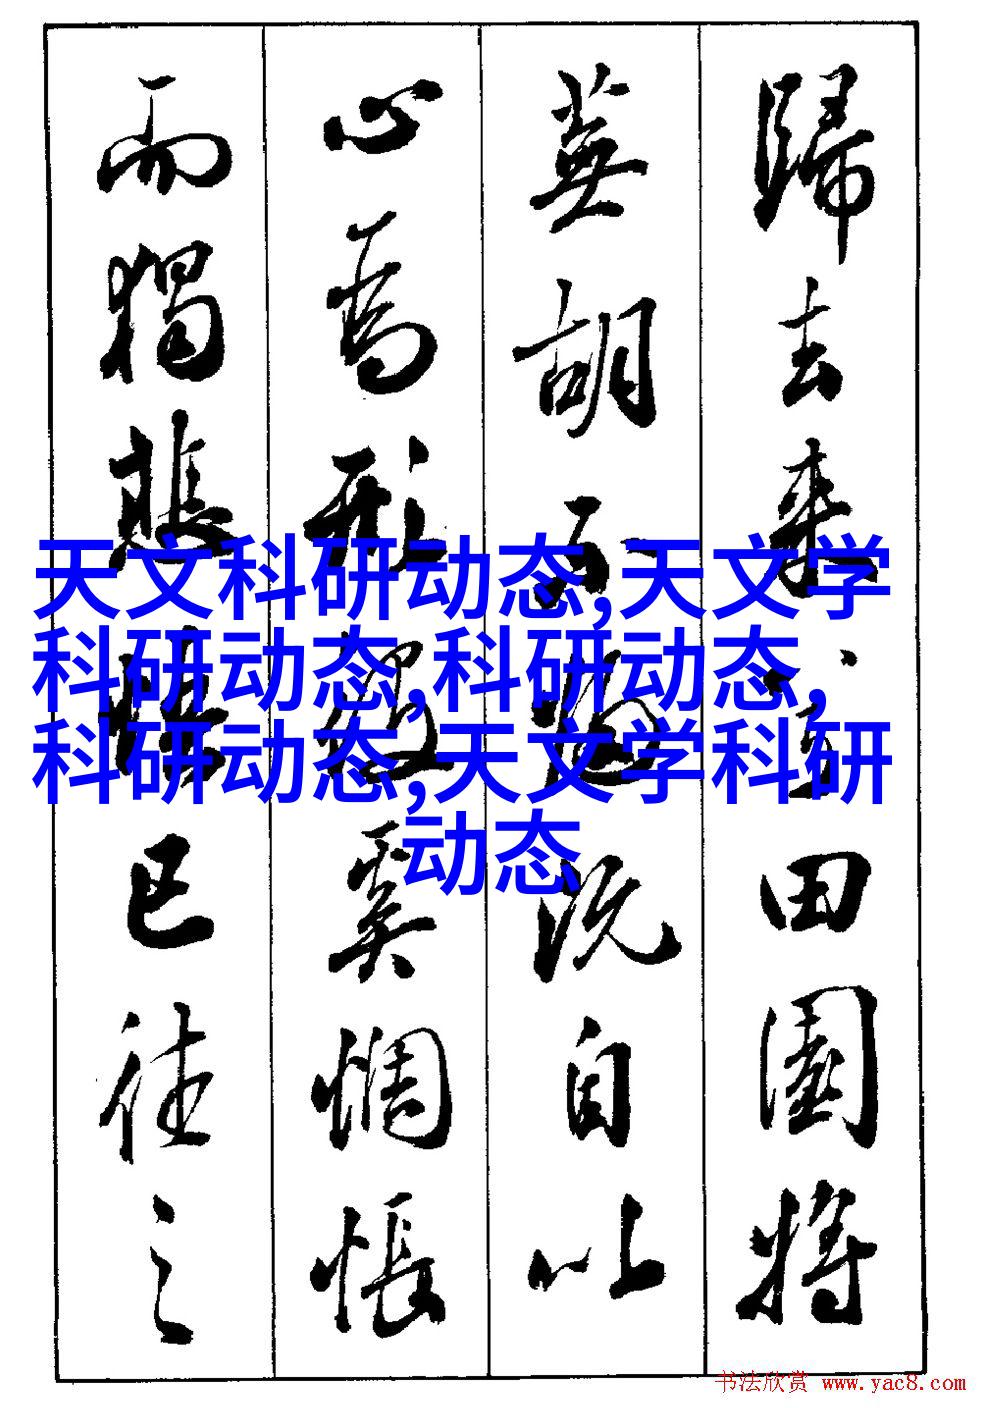 歸去来兮田園將
蕪胡不歸既自以
心為形役奚惆悵
而獨悲悟已往之
天文科研动态,天文学
科研动态,科研动态,
科研动态,天文学科研
动态
书法欣赏 www.yac8.com